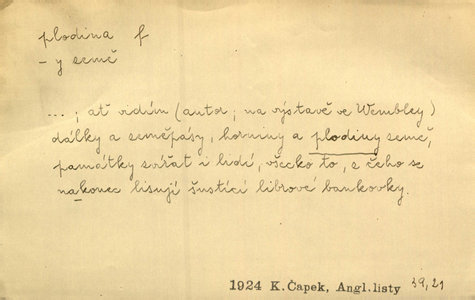 plodina f
- y země
...; ať vidím (autor; na výstavě ve Wembley)
dálky a zeměpásy, horniny a plodiny země,
památky zvířat i lidí, všecko to, z čeho se
nakonec lisují šustící librové bankovky.
1924 K. Čapek, Angl. listy 39,21